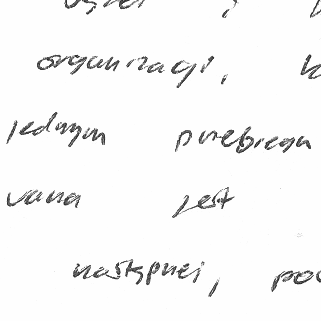 organizacji,
jednym przebiegu
wana jest
następnej,